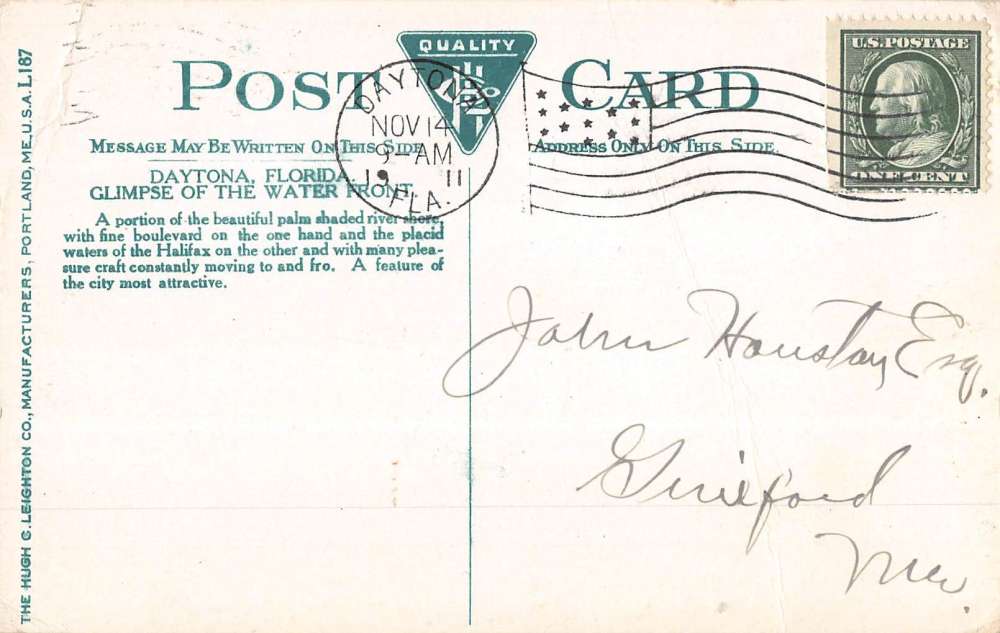 THE HUGH C. LEIGHTON CO., MANUFACTURERS, PORTLAND, ME., U.S.A. L187
POST CARD
QUALITY
MESSAGE MAY BE WRITTEN ON THIS SIDE
ADDRESS ONLY ON THIS SIDE.
DAYTONA, FLORIDA.
GLIMPSE OF THE WATER FRONT.
A portion of the beautiful palm shaded river shore,
with fine boulevard on the one hand and the placid
waters of the Halifax on the other and with many plea-
sure craft constantly moving to and fro. A feature of
the city most attractive.
DAYTONA
NOV 14
9-AM
19 11
FLA.
U.S. POSTAGE
ONE CENT
John Houston, Esq.
Guilford
Me.